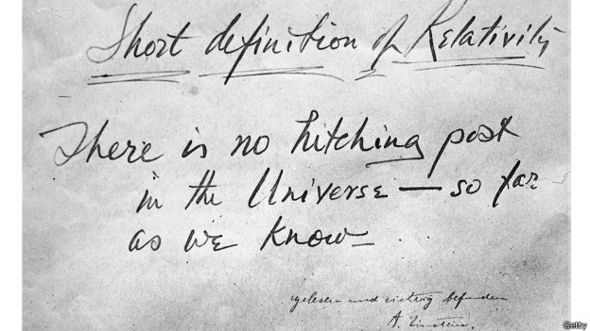 Short definition of Relativity
There is no hitching post
in the Universe — so far
as we know
gelesen und richtig befunden
A. Einstein.
Getty